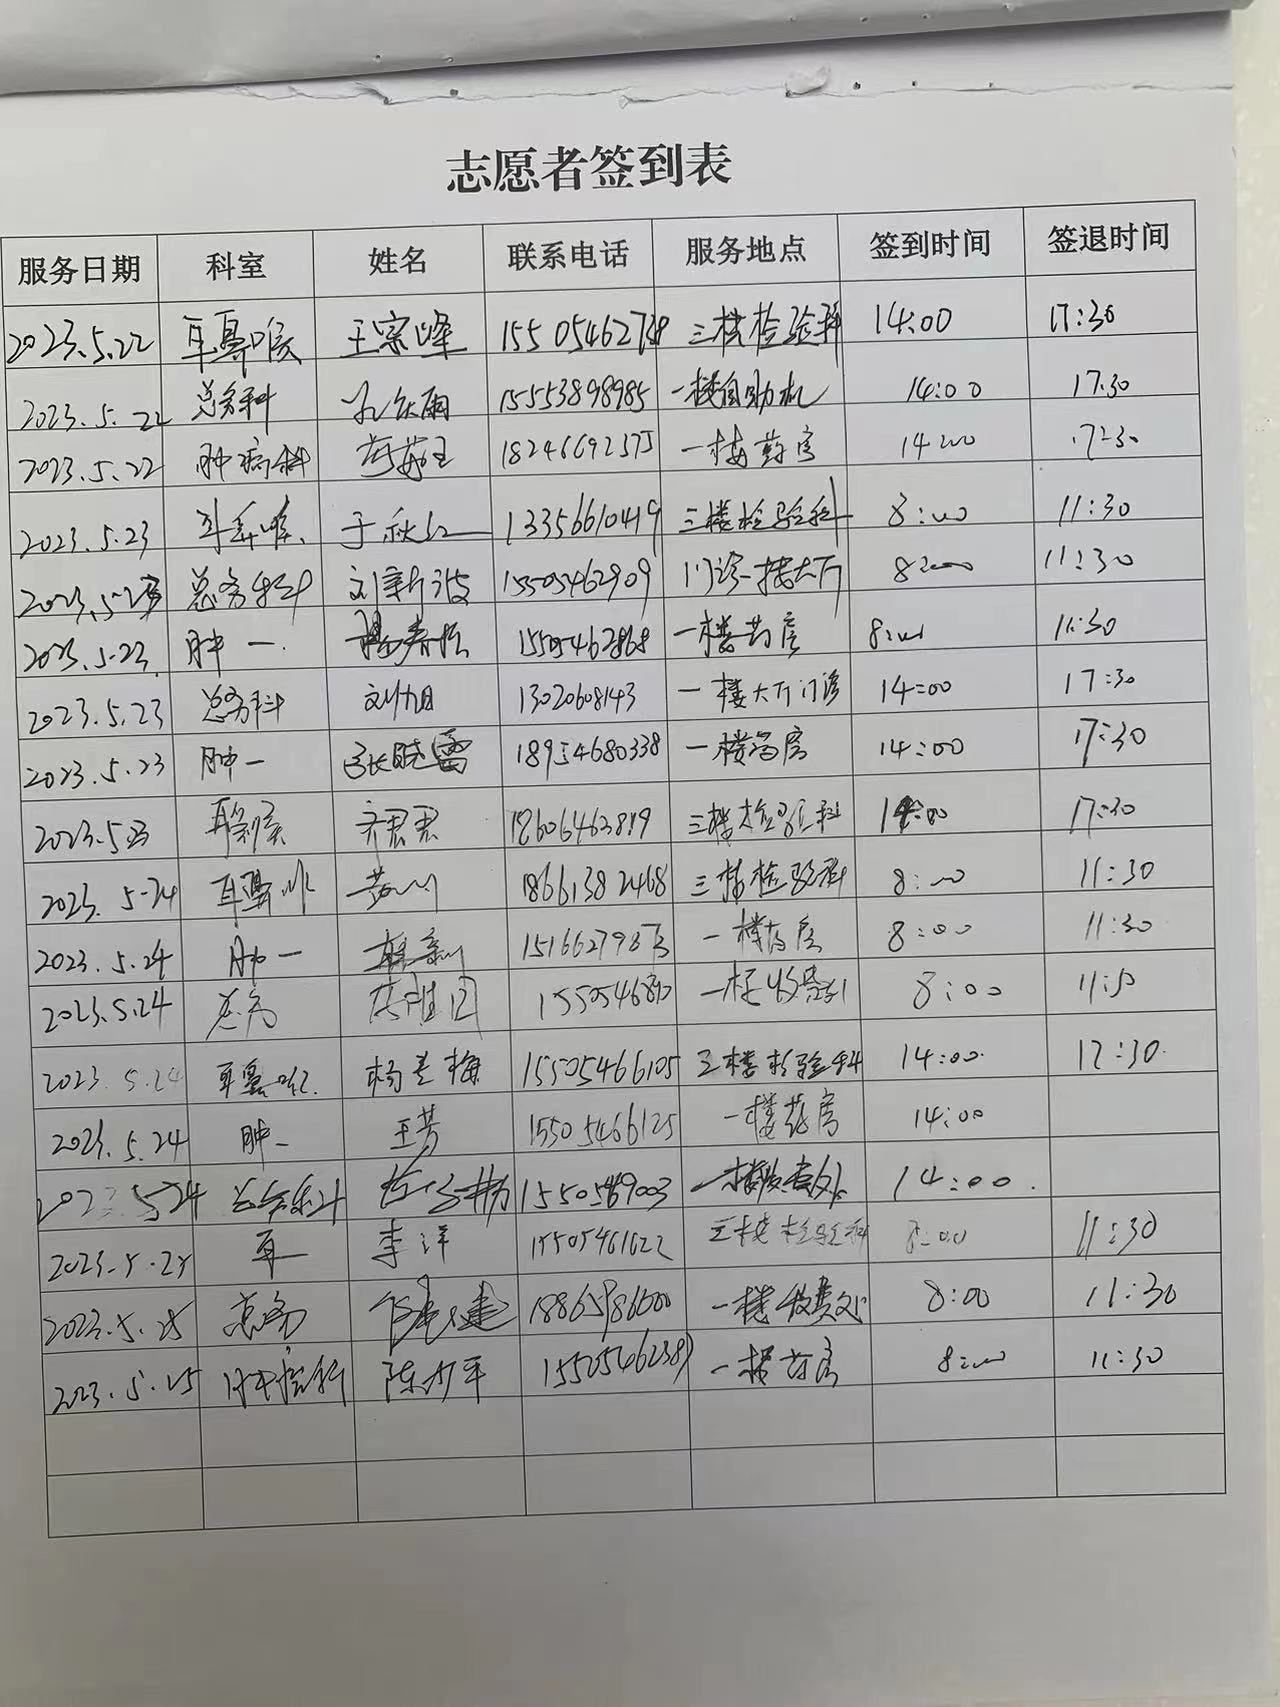 志愿者签到表
服务日期 科室 姓名 联系电话 服务地点 签到时间 签退时间
2023.5.22 耳鼻喉 王宗峰 三楼检验科 14:00 17:30
2023.5.22 总务科 15553898985 一楼自助机 14:00 17:30
2023.5.22 肿瘤科 18246692375 一楼药房 14:00 17:30
2023.5.23 耳鼻喉 于秋红 13356610419 三楼检验科 8:00 11:30
2023.5.23 总务科 刘新波 15505462909 门诊一楼大厅 8:00 11:30
2023.5.23 肿一 一楼药房 8:00 11:30
2023.5.23 总务科 刘旭 13020608143 一楼大厅门诊 14:00 17:30
2023.5.23 肿一 张晓雷 18954680338 一楼药房 14:00 17:30
2023.5.23 耳鼻喉 齐君君 18606463819 三楼检验科 14:00 17:30
2023.5.24 耳鼻喉 18661382468 三楼检验科 8:00 11:30
2023.5.24 肿一 一楼药房 8:00 11:30
2023.5.24 总务 8:00 11:30
2023.5.24 耳鼻喉 杨兰梅 15505466105 三楼检验科 14:00 17:30
2023.5.24 肿一 王芳 15505466125 一楼药房 14:00
2023.5.24 总务科 一楼收费处 14:00
2023.5.25 耳一 李洋 15505461622 三楼检验科 8:00 11:30
2023.5.25 总务 一楼收费处 8:00 11:30
2023.5.25 肿瘤科 一楼药房 8:00 11:30